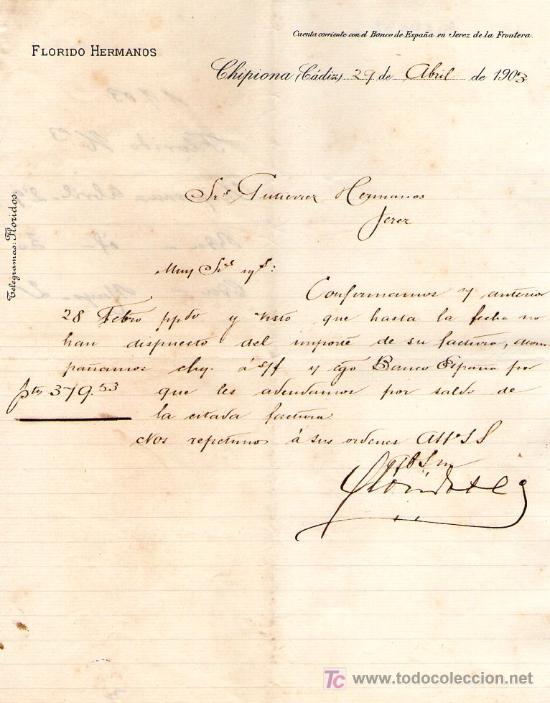 Cuenta corriente con el Banco de España en Jerez de la Frontera.
FLORIDO HERMANOS
Chipiona (Cádiz) 29 de Abril de 1903
Telegramas: Floridos
Srs Gutierrez Hermanos
Jerez
Muy Srs ntrs:
Confirmamos ntr anterior
28 Febro ppdo y visto que hasta la fecha no
han dispuesto del importe de su factura, acom
pañamos chq. á s/f y cgo Banco España por
pts 379.33 que les adeudamos por saldo de
la citada factura
Nos repetimos á sus ordenes Atts SS
TC www.todocoleccion.net